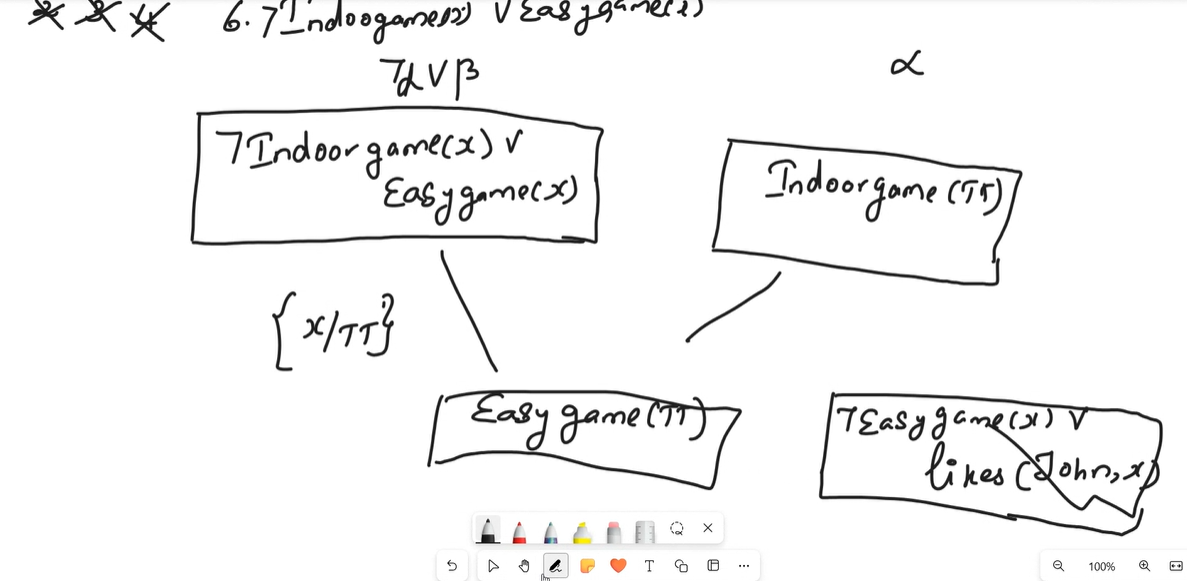 6. ⅂Indoogame(x) V Easygame(x)
⅂α V β
α
⅂Indoorgame(x) V
Easygame(x)
Indoorgame(TT)
{x/TT}
Easygame(TT)
⅂Easygame(x) V
likes(John,x)
T
100%